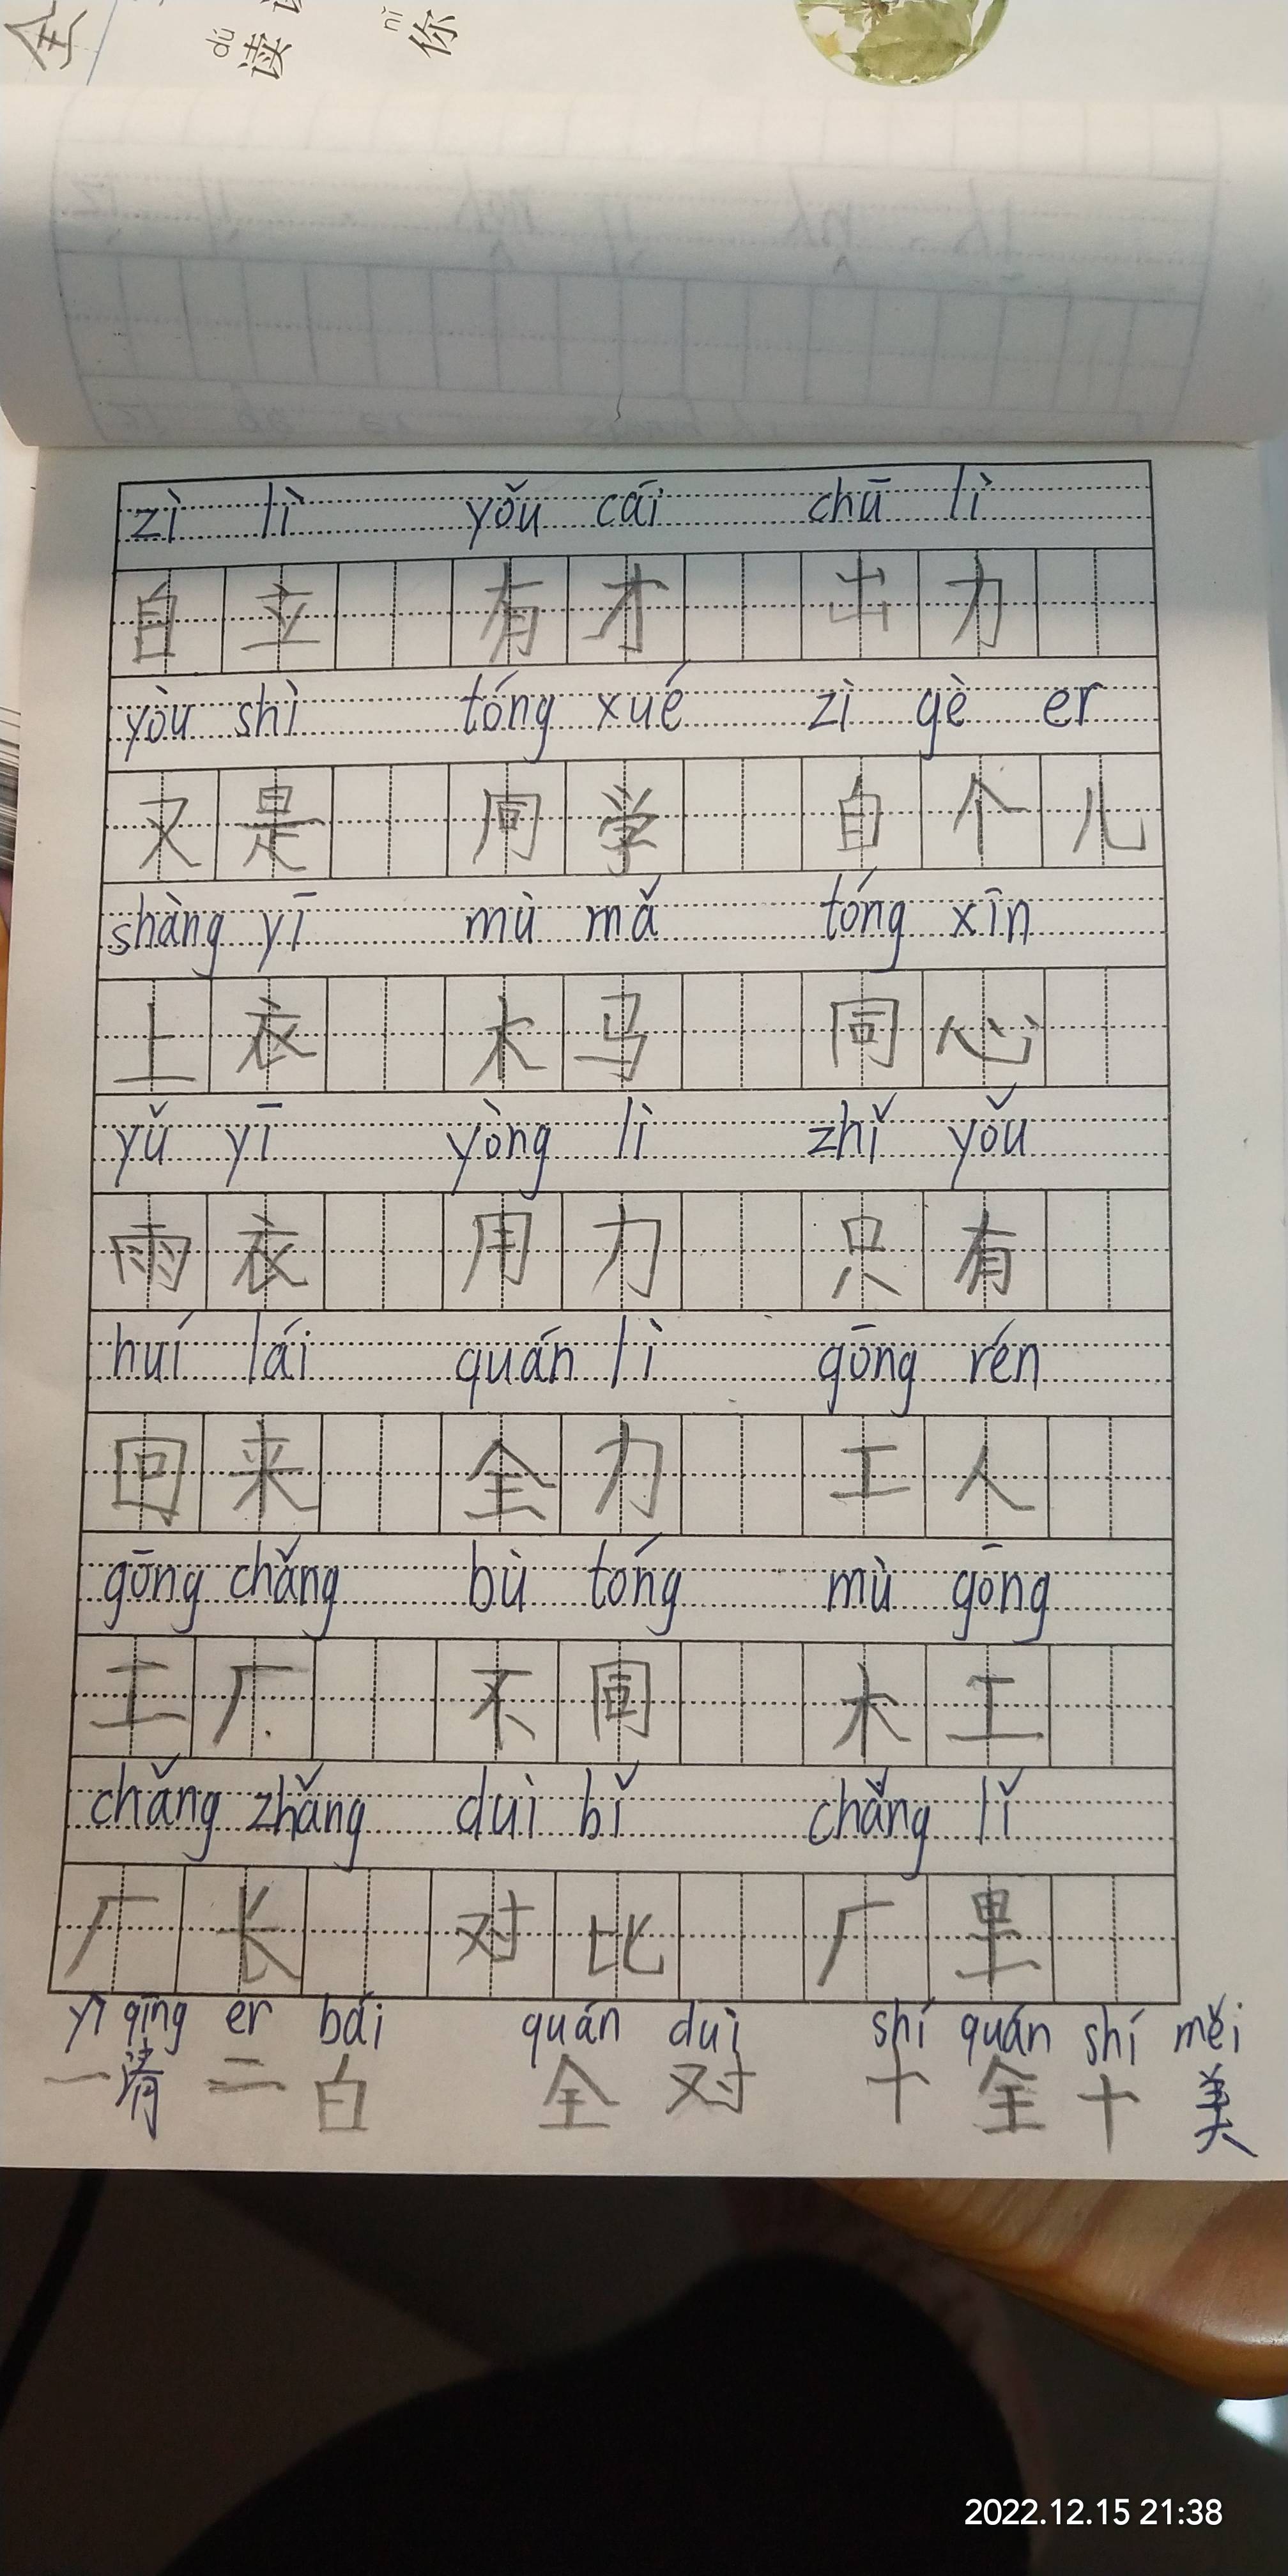 全
dú nǐ
读 你
zì lì yǒu cái chū lì
自立 有才 出力
yòu shì tóng xué zì gè er
又是 同学 自个儿
shàng yī mù mǎ tóng xīn
上衣 木马 同心
yǔ yī yòng lì zhǐ yǒu
雨衣 用力 只有
huí lái quán lì gōng rén
回来 全力 工人
gōng chǎng bù tóng mù gōng
工厂 不同 木工
chǎng zhǎng duì bǐ chǎng lǐ
厂长 对比 厂里
yī qīng er bái quán duì shí quán shí měi
一清二白 全对 十全十美
2022.12.15 21:38